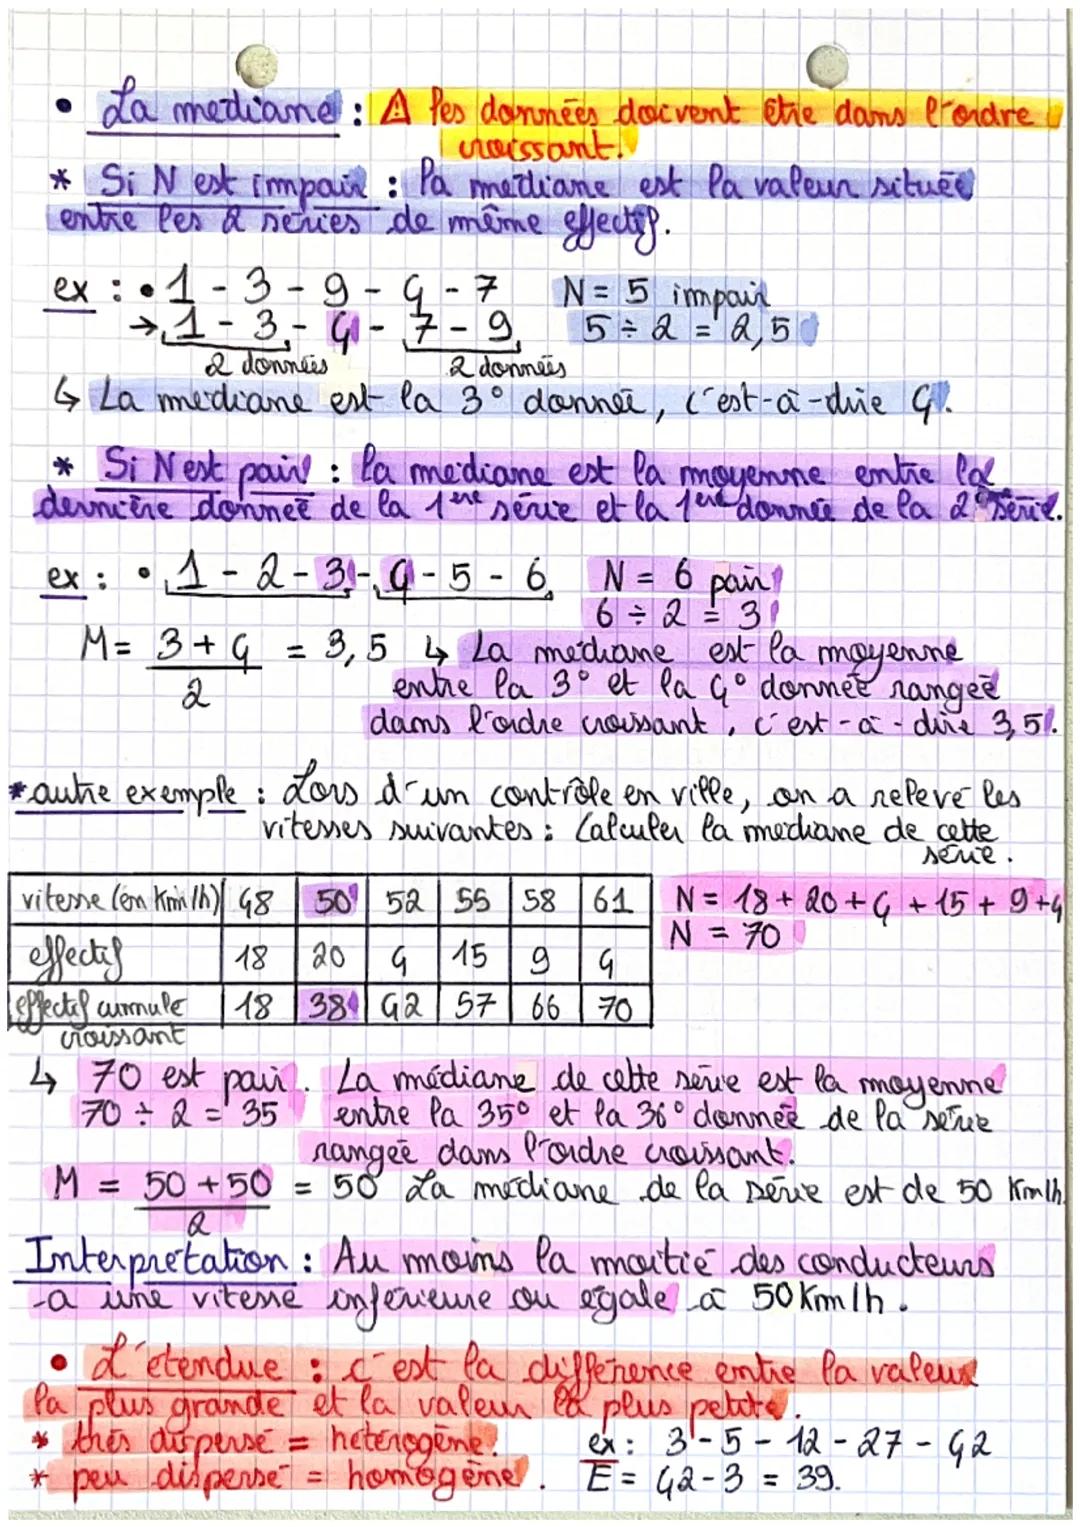 • La médiane : ⚠ les données doivent être dans l'ordre
croissant.
* Si N est impair : la médiane est la valeur située
entre les 2 séries de même effectif.
ex : • 1 - 3 - 9 - 4 - 7 N = 5 impair
→ 1 - 3 - 4 - 7 - 9 5 ÷ 2 = 2,5
2 données 2 données
↳ La médiane est la 3° donnée, c'est-à-dire 4.
* Si N est pair : la médiane est la moyenne entre la
dernière donnée de la 1ère série et la 1ère donnée de la 2° série.
ex : • 1 - 2 - 3 - 4 - 5 - 6 N = 6 pair
6 ÷ 2 = 3
M = 3 + 4 = 3,5 ↳ La médiane est la moyenne
2 entre la 3° et la 4° donnée rangée
dans l'ordre croissant, c'est-à-dire 3,5.
* autre exemple : Lors d'un contrôle en ville, on a relevé les
vitesses suivantes : Calculer la médiane de cette
série.
vitesse (en Km/h) 48 50 52 55 58 61 N = 18 + 20 + 4 + 15 + 9 + 4
effectif 18 20 4 15 9 4 N = 70
effectif cumulé 18 38 42 57 66 70
croissant
↳ 70 est pair. La médiane de cette série est la moyenne
70 ÷ 2 = 35 entre la 35° et la 36° donnée de la série
rangée dans l'ordre croissant.
M = 50 + 50 = 50 La médiane de la série est de 50 Km/h.
2
Interprétation : Au moins la moitié des conducteurs
a une vitesse inférieure ou égale à 50 Km/h.
• L'étendue : c'est la différence entre la valeur
la plus grande et la valeur la plus petite.
* très dispersé = hétérogène. ex : 3 - 5 - 12 - 27 - 42
* peu dispersé = homogène. E = 42 - 3 = 39.